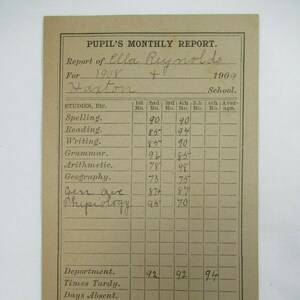 PUPIL'S MONTHLY REPORT.
Report of Ella Reynolds
For 1908 + 1909
Haxton School.
STUDIES, Etc. 1st Mo. 2nd Mo. 3rd Mo. 4th Mo. 5th Mo. 6th Mo. Aver- age.
Spelling. 90 90
Reading. 85 94
Writing. 85 90
Grammar. 92 85
Arithmetic. 78 98
Geography. 73 75
Gen ave 84 87
Physiology 95 70
Department. 92 92 94
Times Tardy.
Days Absent.